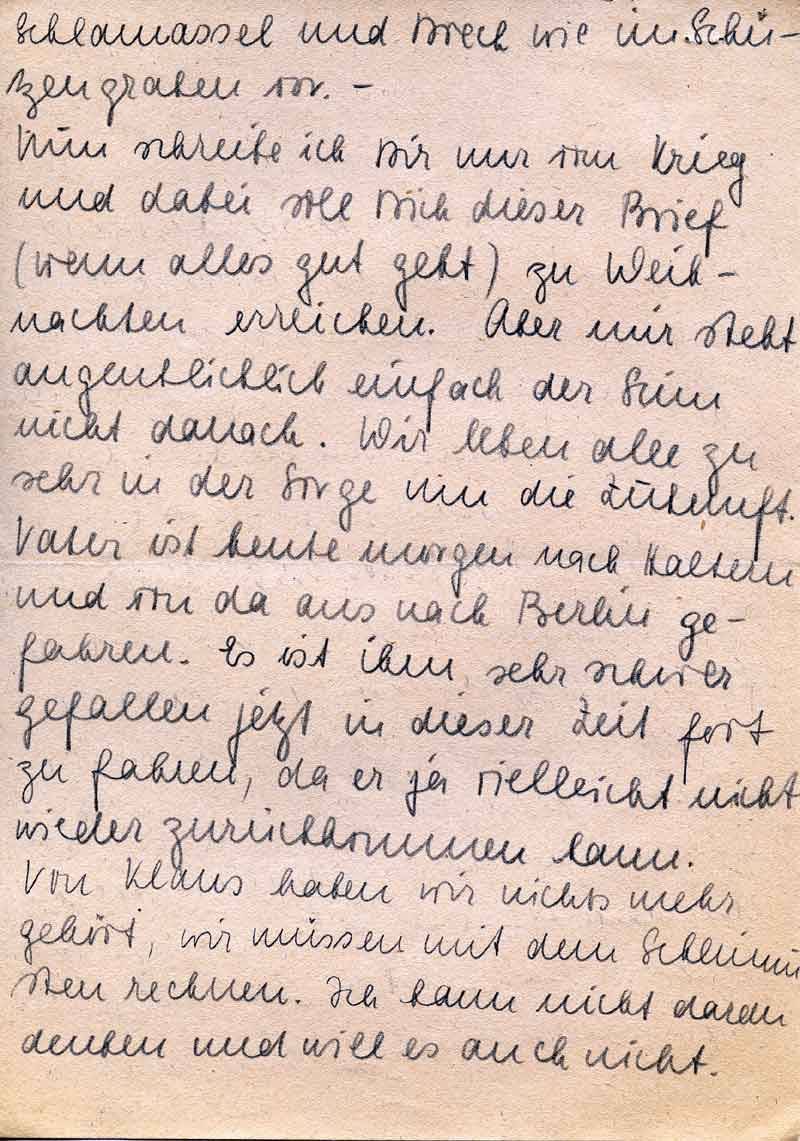 Schlamassel und Dreck wie im Schü-
tzengraben vor. -
Nun schreibe ich Dir nur vom Krieg
und dabei soll Dich dieser Brief
(wenn alles gut geht) zu Weih-
nachten erreichen. Aber mir steht
augenblicklich einfach der Sinn
nicht danach. Wir leben alle zu
sehr in der Sorge um die Zukunft.
Vater ist heute morgen nach Haltern
und von da aus nach Berlin ge-
fahren. Es ist ihm sehr schwer
gefallen jetzt in dieser Zeit fort
zu fahren, da er ja vielleicht nicht
wieder zurückkommen kann.
Von Klaus haben wir nichts mehr
gehört, wir müssen mit dem Schlimm
sten rechnen. Ich kann nicht daran
denken und will es auch nicht.